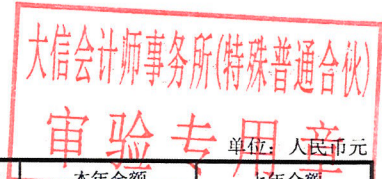 大信会计师事务所(特殊普通合伙)
审验专用章
单位：人民币元
本年金额 上年金额